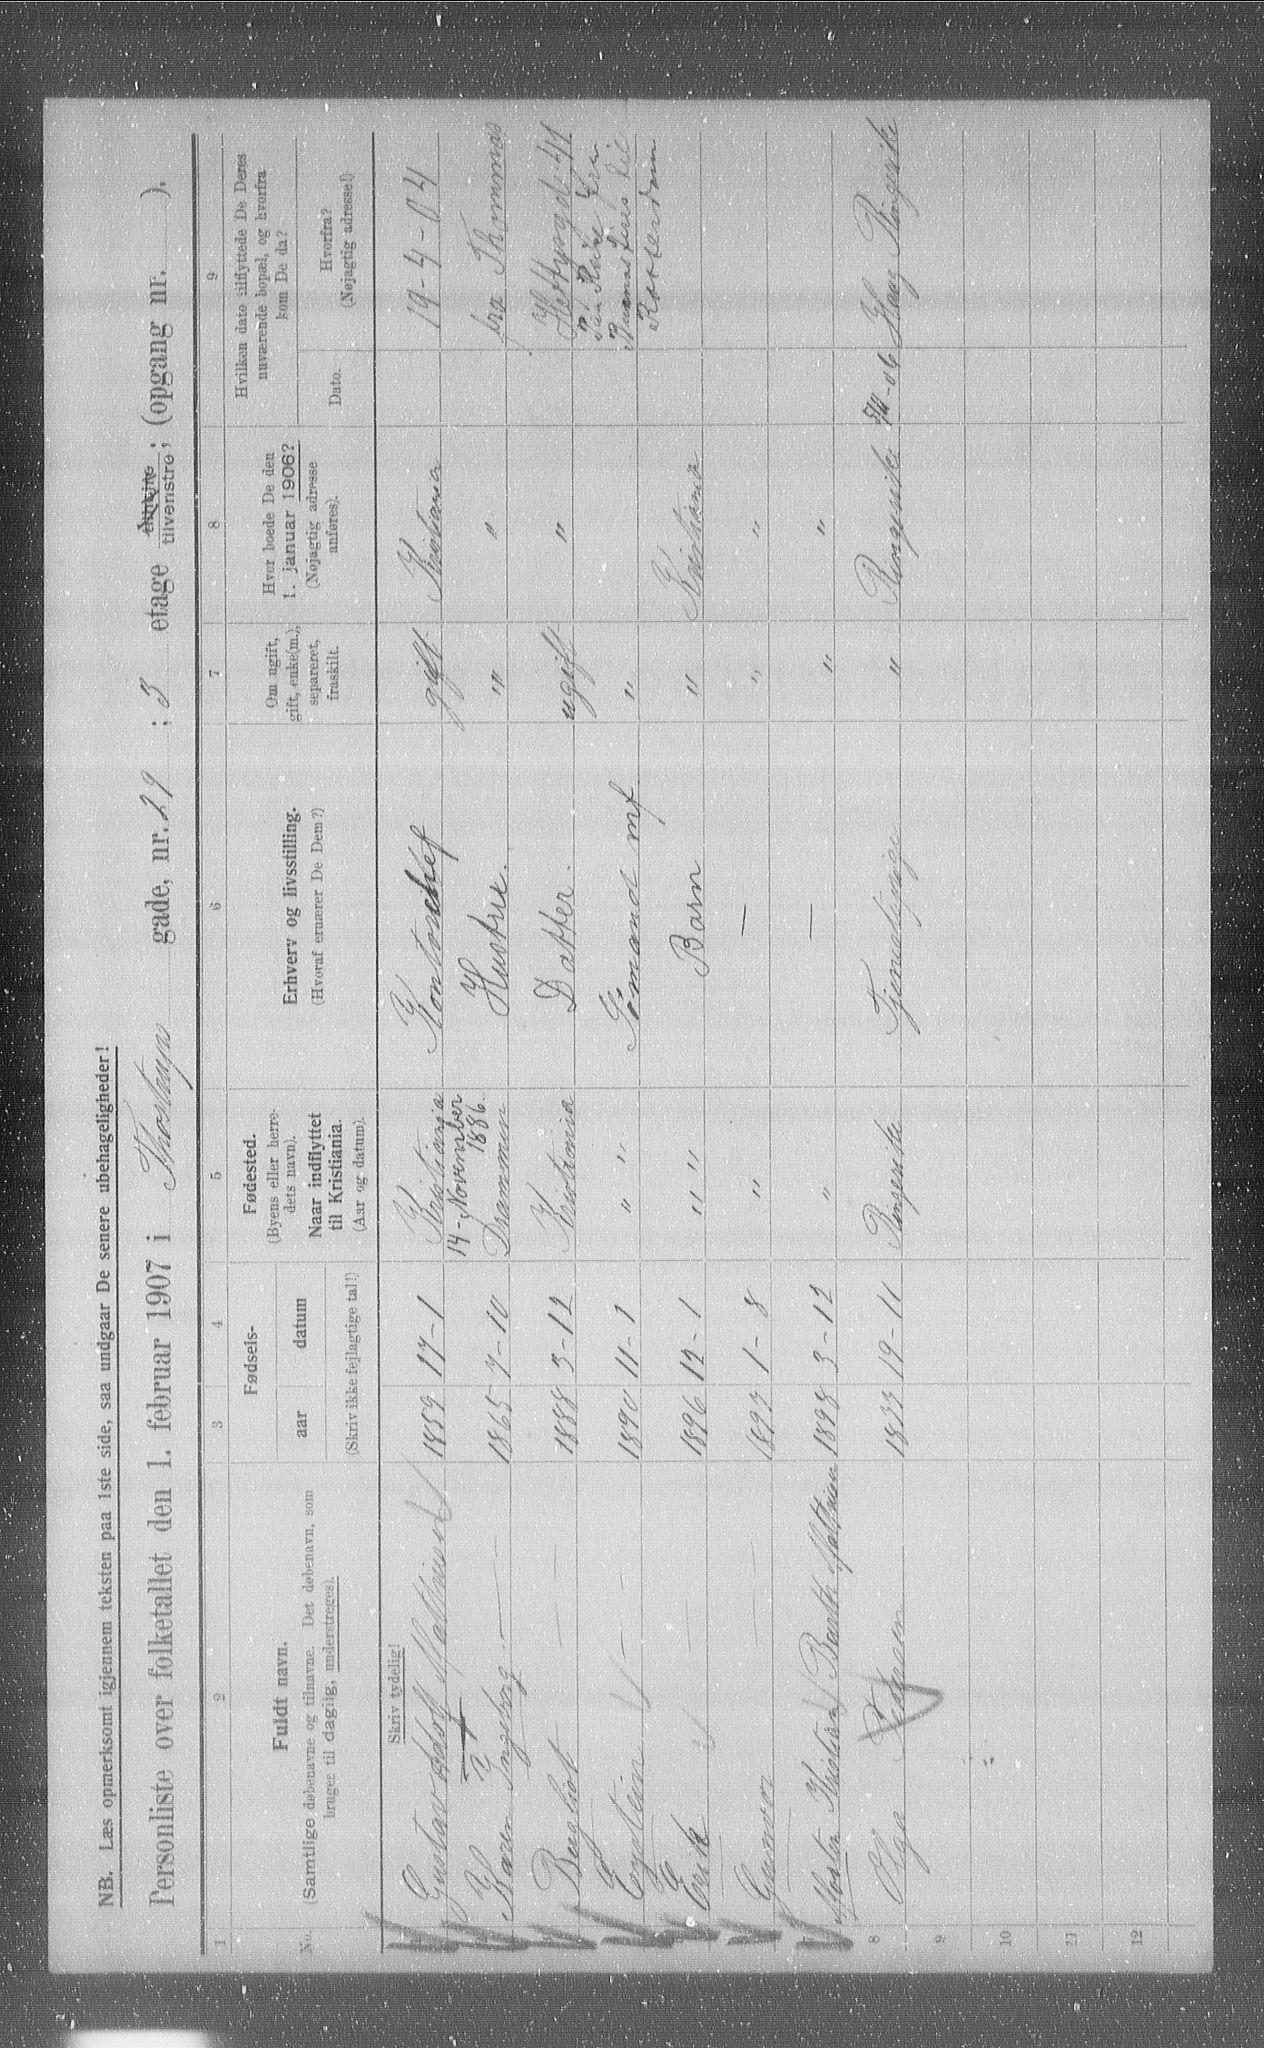 NB. Læs opmerksomt igjennem teksten paa 1ste side, saa undgaar De senere ubehageligheder!
Personliste over folketallet den 1. februar 1907 i Thostrups gade, nr. 29 ; 3 etage tilhøire tilvenstre; (opgang nr. ).
1 2 3 4 5 6 7 8 9
No.
Fuldt navn.
(Samtlige døbenavne og tilnavne. Det døbenavn, som
bruges til daglig, understreges).
Fødsels-
aar datum
(Skriv ikke fejlagtige tal!)
Fødested.
(Byens eller herre-
dets navn).
Naar indflyttet
til Kristiania.
(Aar og datum).
Erhverv og livsstilling.
(Hvoraf ernærer De Dem?)
Om ugift,
gift, enke(m.),
separeret,
fraskilt.
Hvor boede De den
1. januar 1906?
(Nøjagtig adresse
anføres).
Hvilken dato tilflyttede De Deres
nuværende bopæl, og hvorfra
kom De da?
Dato.
Hvorfra?
(Nøjagtig adresse!)
Skriv tydelig!
Gustav Adolf 1859 17-1 Kristiania Kontorchef gift Kristiania 19-4-04
14-November
1886.
Karen Ingeborg — 1865 7-10 Drammen Hustru. " " fra Thommas
Bergliot — 1888 3-12 Kristiania Datter. ugift " 41
Eystein — 1890 11-1 " " Sømand "
til
Erik — 1896 12-1 " " Barn " Kristiania
Gunvor — 1893 1-8 " — " "
Morten Kristian Barth 1898 3-12 " — " "
8 Olga 19-11 Ringerike Tjenestepige " Ringerike Haug Ringerike
9
10
11
12